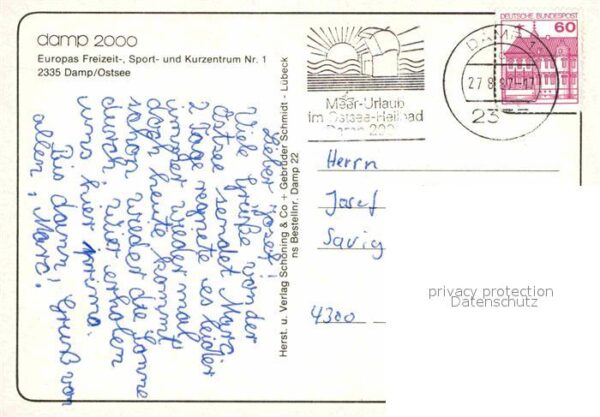 damp 2000
Europas Freizeit-, Sport- und Kurzentrum Nr. 1
2335 Damp/Ostsee
Lieber Josef!
Viele Grüße von der
Ostsee sendet Marc.
2 Tage regnete es leider
immer wieder mal
doch heute kommt
schon wieder die Sonne
durch. Wir erholen
uns hier prima.
Bis dann, Gruß von
allen, Marc.
Herst. u. Verlag Schöning & Co + Gebrüder Schmidt - Lübeck
ns Bestellnr. Damp 22
Meer-Urlaub
im Ostsee-Heilbad
Damp 200
DAMP 1
27.8.87-17
23
DEUTSCHE BUNDESPOST
60
Herrn
Josef
Savig
4300
privacy protection
Datenschutz